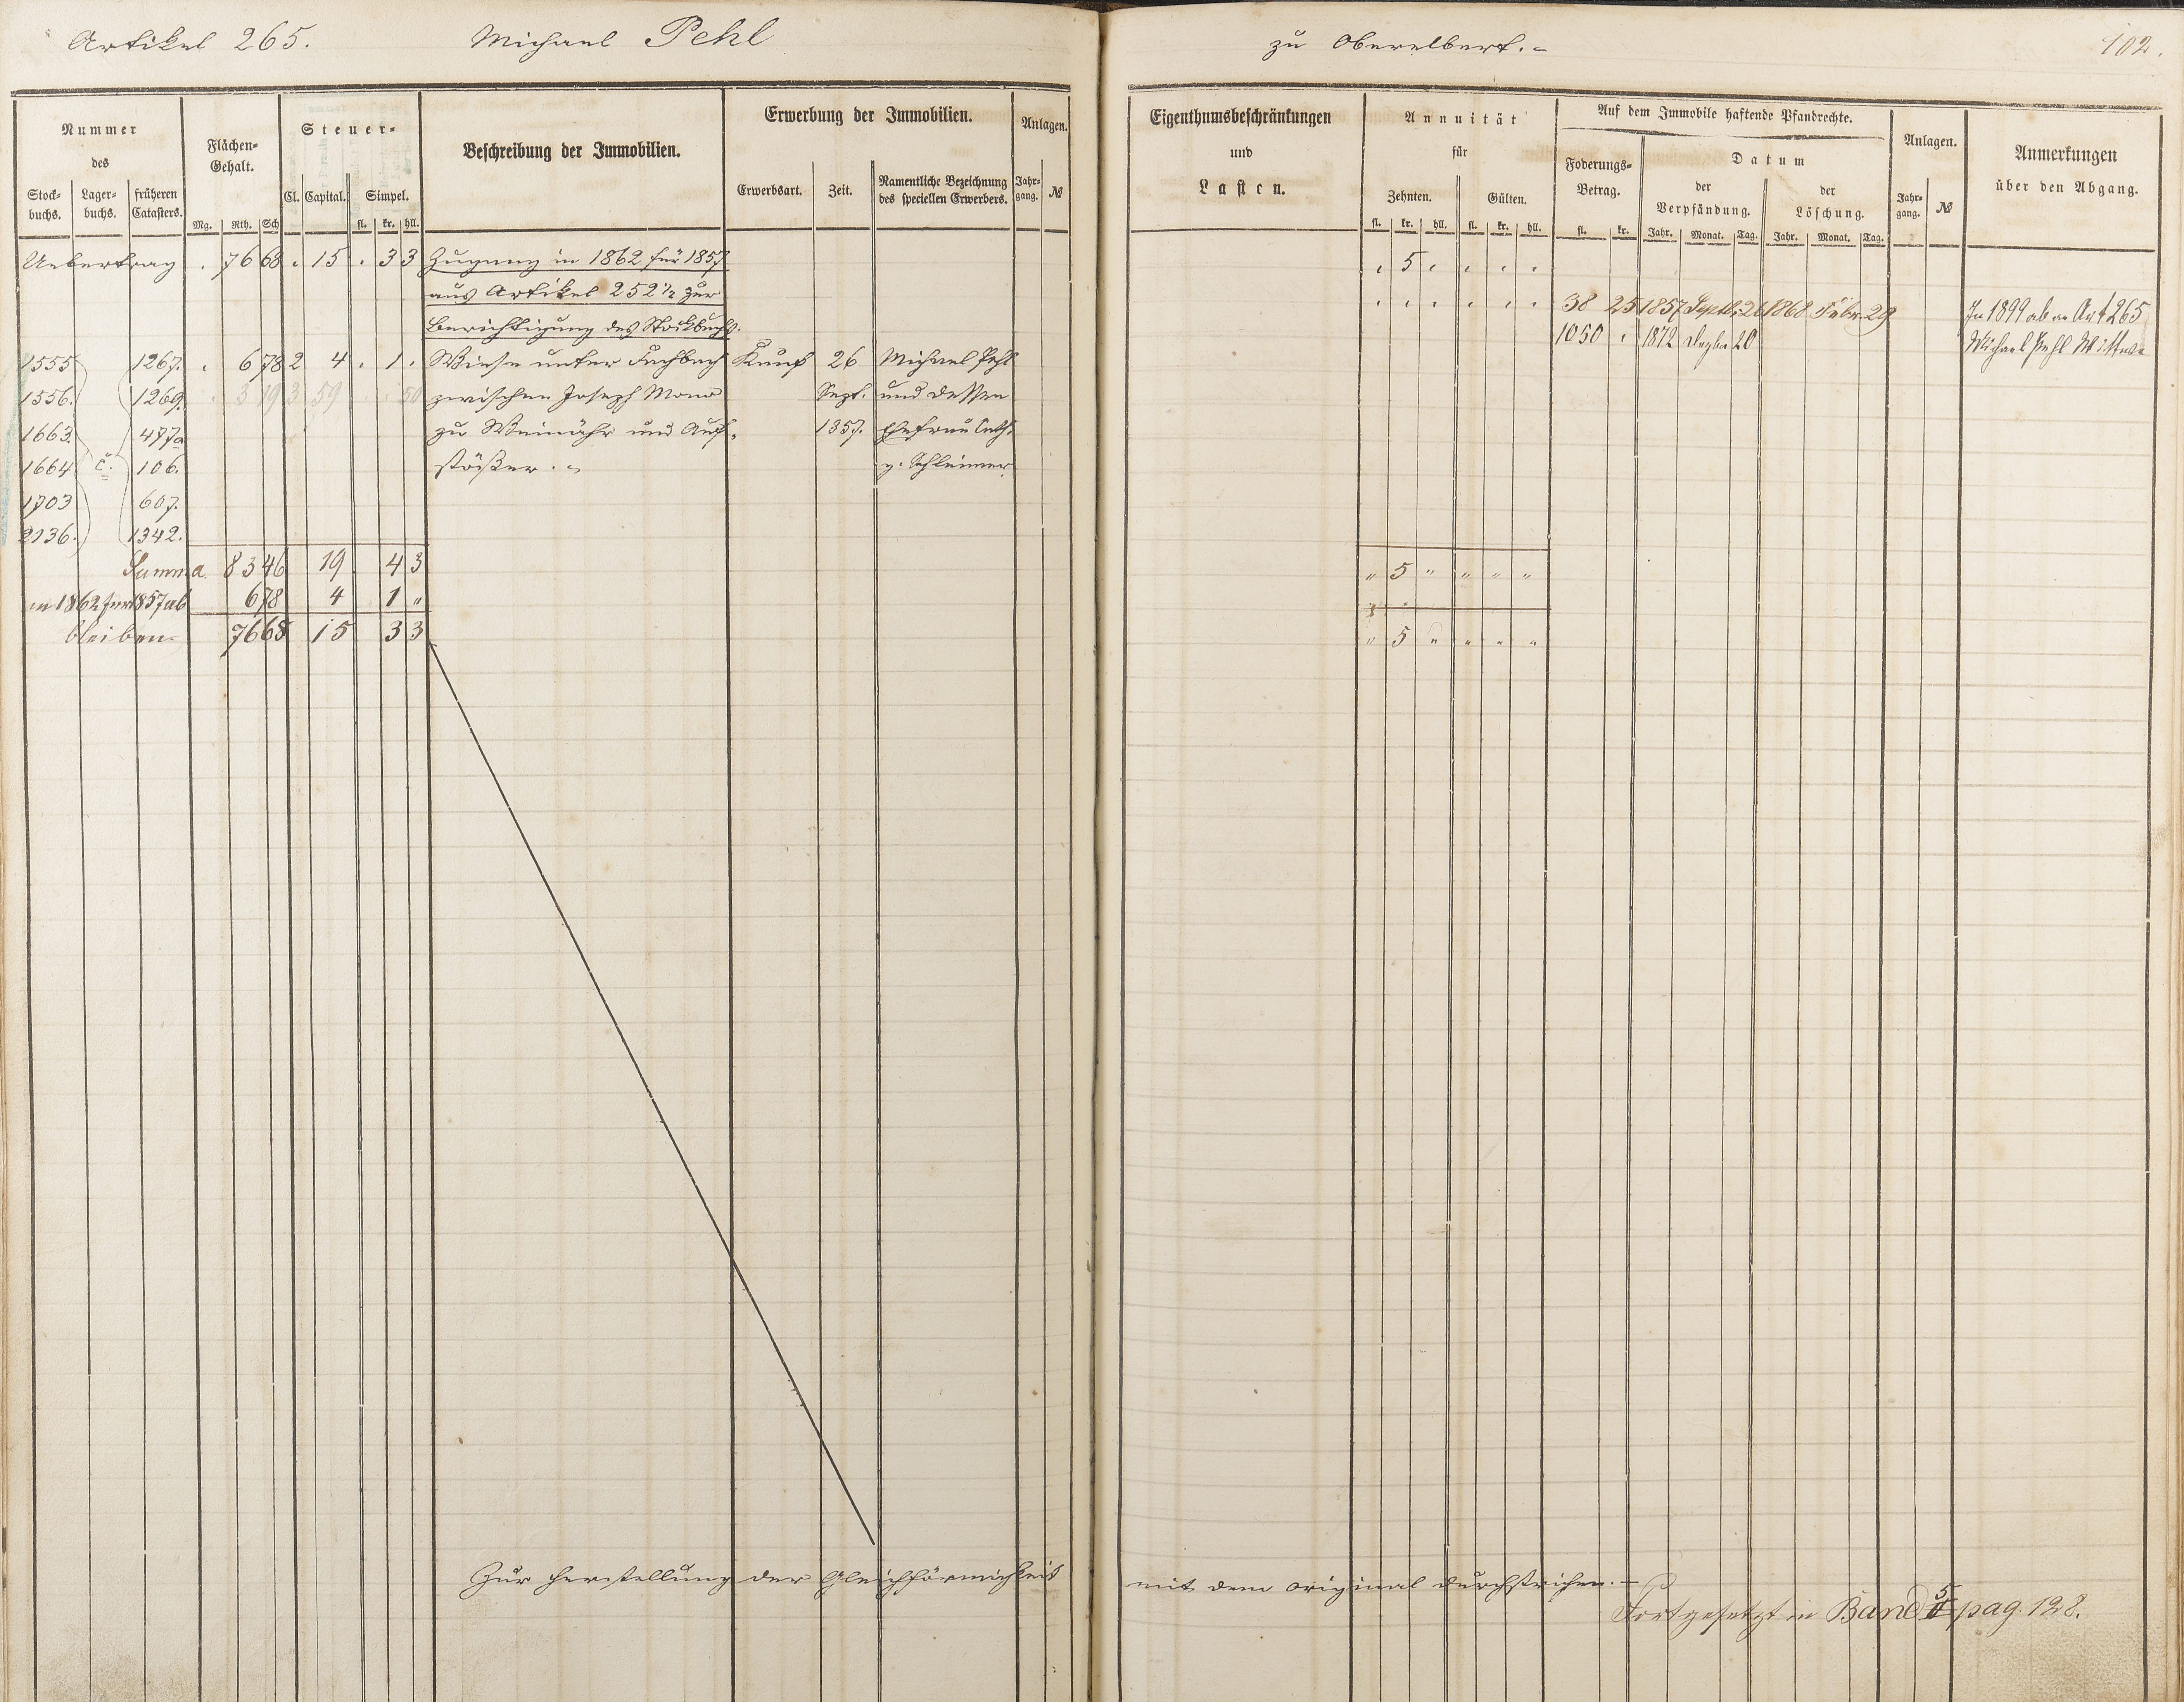 Artikel 265. Michael Pehl
zu Oberelbert.
102.
Nummer
des
Stock-
buchs.
Lager-
buchs.
früheren
Catasters.
Flächen-
Gehalt.
Mg. Rth. Sch
Steuer-
Cl. Capital. Simpel.
fl. kr. hll.
Beschreibung der Immobilien.
Erwerbung der Immobilien.
Erwerbsart. Zeit.
Namentliche Bezeichnung
des speciellen Erwerbers.
Anlagen.
Jahr-
gang. №
Uebertrag . 76 68 . 15 . 3 3 Zugang in 1862 für 1857
aus Artikel 252 1/2 zur
Berichtigung des Stockbuchs.
1555 1267. . 6 78 2 4 . 1 . Wiese unter Fachbach Kauf 26 Michael Pehl
1556. 1269. . 3 19 3 59 50 zwischen Joseph Mono Sept. und dessen
1663. 477a zu Weinähr und Auf- 1857. Ehefrau Cath.
1664 c. 106. stößer. g. Schleimer
1703 607.
2136. 1342.
Summa. 83 46 19 4 3
in 1862 für 1857 ab 6 78 4 1 "
bleiben 76 68 15 3 3
Zur Herstellung der Gleichförmigkeit
Eigenthumsbeschränkungen
und
Lasten.
Annuität
für
Zehnten. Gülten.
fl. kr. hll. fl. kr. hll.
Auf dem Immobile haftende Pfandrechte.
Foderungs-
Betrag.
fl. kr.
Datum
der
Verpfändung.
der
Löschung.
Jahr. Monat. Tag. Jahr. Monat. Tag.
Anlagen.
Jahr-
gang. №
Anmerkungen
über den Abgang.
. 5 . . . .
. . . . . . 38 25 1857 Septbr 26 1868 Febr. 29 In 1899 ab an Art 265
1050 . 1872 Dezbr 20 Michael Pehl Wittwe
" 5 " " " "
" 5 " " " "
mit dem Original durchstrichen.
Fortgesetzt in Band 5 pag. 128.